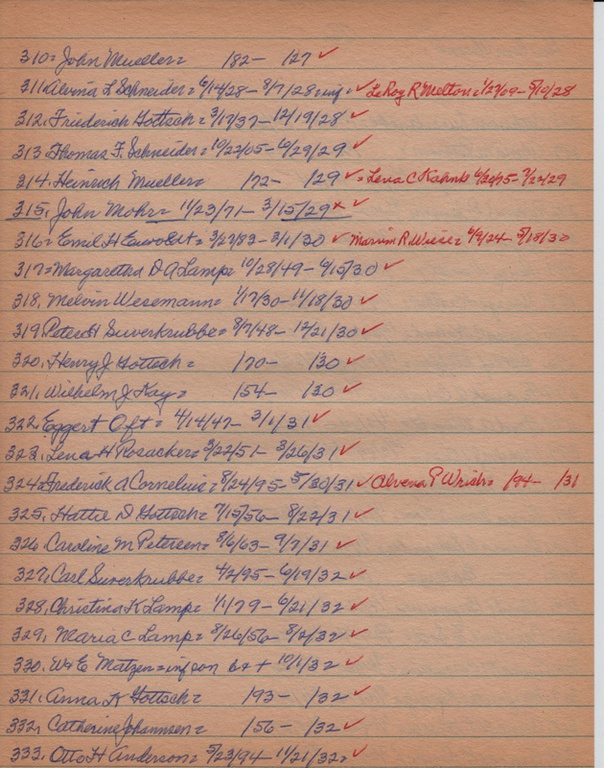 310= John Mueller= /82- /27 ✓
311, Alvina L Schneider= 6/14/28- 8/7/28= inf. ✓ LeRoy R Melton= 1/27/09- 5/10/28
312, Friederich Gottsch= 3/17/37- 12/19/28 ✓
313, Thomas F. Schneider= 10/22/05- 6/29/29 ✓
314, Heinrich Mueller= /72- /29 ✓ = Lena C 6/20/75- 7/23/29
315, John Mohr= 11/23/71- 3/15/29 x ✓
316= Emil H Ewoldt= 3/27/83- 3/1/30 ✓ Marvin R. Wiese= 6/9/24- 5/18/30
317= Margaretha D A Lamp= 10/28/49- 6/15/30 ✓
318, Melvin Wesemann= 1/17/30- 11/18/30 ✓
319 Peter H Suverkrubbe= 8/7/48- 12/21/30 ✓
320, Henry J Gottsch= /70- /30 ✓
321, Wilhelm J Kay= /54- /30 ✓
322, Eggert Oft= 4/14/47- 3/1/31 ✓
323, Lena H Rosacker= 3/22/51- 3/26/31 ✓
324= Frederick A Cornelius= 8/24/95- 5/30/31 ✓ Alvena P = /94- /31
325, Hattie D Gottsch= 7/15/56- 8/22/31 ✓
326, Caroline M Petersen= 8/6/63- 9/7/31 ✓
327, Carl Suverkrubbe= 4/2/95- 6/19/32 ✓
328, Christina K Lamp= 1/1/79- 6/21/32 ✓
329, Maria C Lamp= 8/26/56- 8/2/32 ✓
330, W E Matzen= inf son b + 10/1/32 ✓
331, Anna K Gottsch= /93- /32 ✓
332, Catherine Johannsen= /56- /32 ✓
333, Otto H Anderson= 5/23/94 11/21/32 ✓